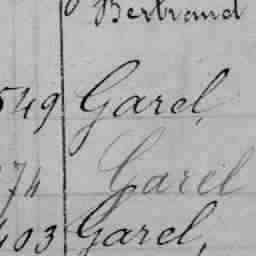 Bertrand
549 Garel,
74 Garel
403 Garel,